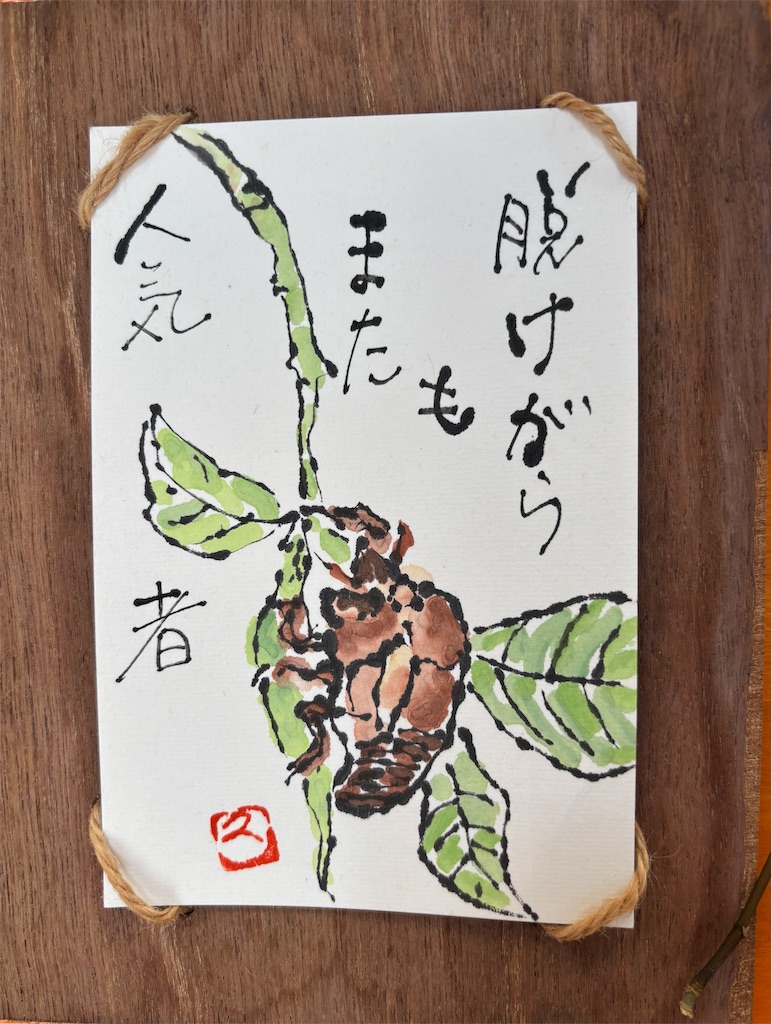 脱けがら
も
また
人気
者
久